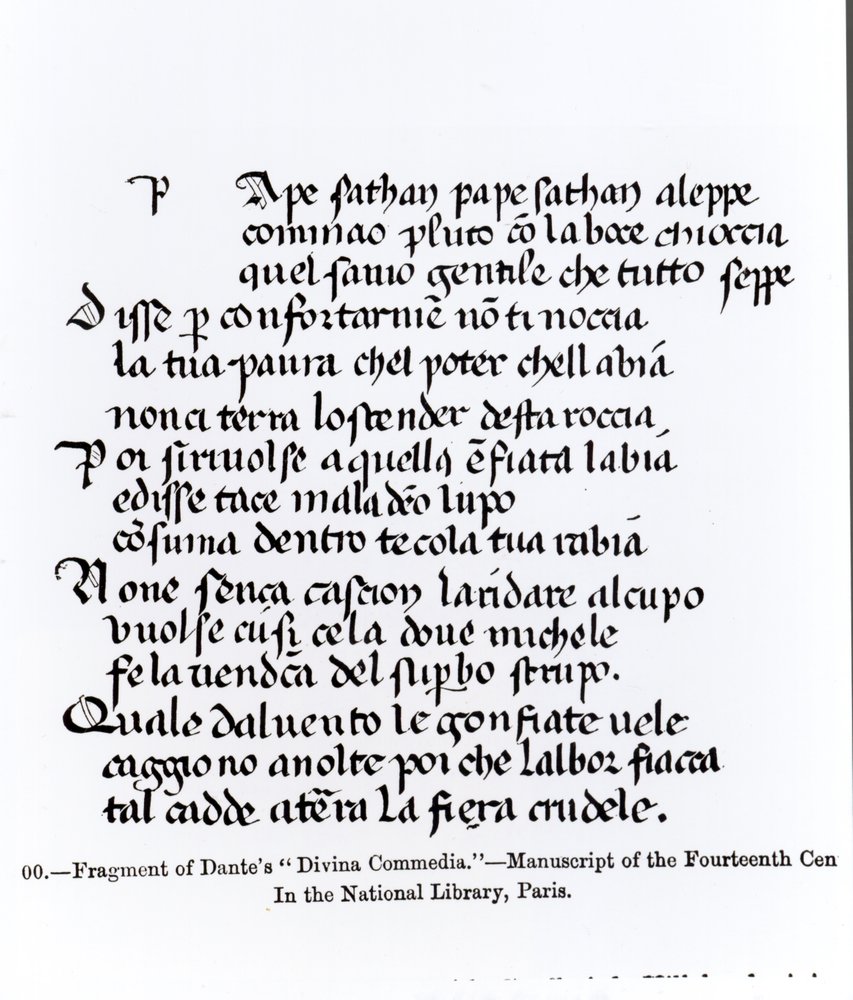 P Ape sathan pape sathan aleppe
cominao pluto cō la boce chioccia
quel savio gentile che tutto seppe
Disse p confortarmē nō ti noccia
la tua paura chel poter chell abiā
non ci terra lo scender desta roccia
Poi si rivolse a quella ēfiata labiā
e disse tace maladēo lupo
cōsuma dentro te cola tua rabiā
None sença cascion laridare al cupo
vuolse cusi cela dove michele
fe la vendcā del supbo strupo.
Quale dal uento le gonfiate uele
caggiono auolte poi che lalbor fiacca
tal cadde atēra la fiera crudele.
00.—Fragment of Dante's "Divina Commedia."—Manuscript of the Fourteenth Cen
In the National Library, Paris.